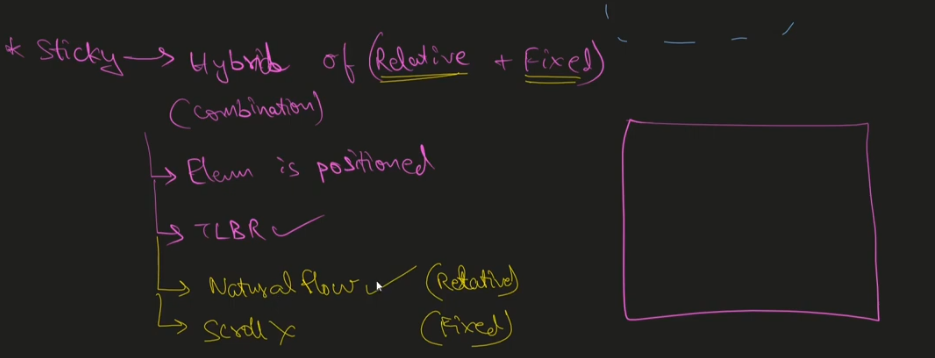 * Sticky → Hybrid of (Relative + Fixed)
(Combination)
→ Elem is positioned
→ TLBR ✓
→ Natural flow ✓ (Relative)
→ Scroll X (Fixed)